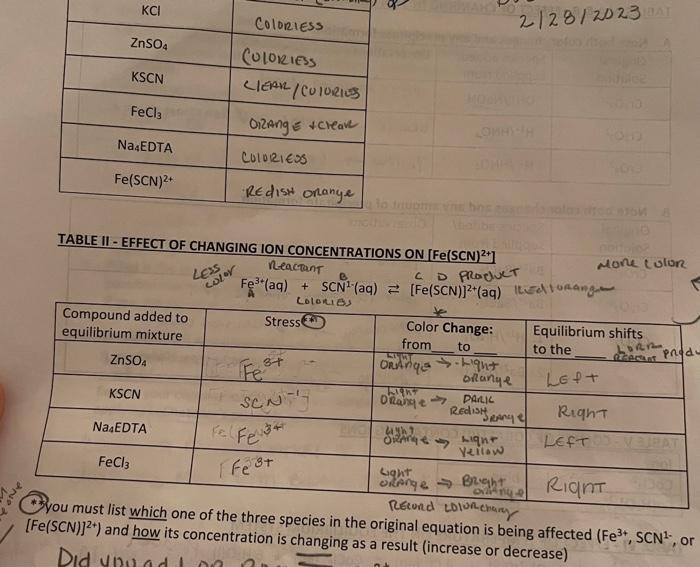 2/28/2023
KCl COlORlESS
ZnSO₄ COlORlESS
KSCN ClEAR/COlORlES
FeCl₃ ORANgE + cleaR
Na₄EDTA COlORlESS
Fe(SCN)²⁺ REdisH oRange
TABLE II - EFFECT OF CHANGING ION CONCENTRATIONS ON [Fe(SCN)²⁺]
LESS color Reactant B C D PRODUCT MORE COlOR
Fe³⁺(aq) + SCN¹⁻(aq) ⇄ [Fe(SCN)]²⁺(aq) Red/orange
A COlORlES
Compound added to equilibrium mixture Stress** Color Change: from __ to __ Equilibrium shifts to the ____
REACTANT prod
ZnSO₄ Fe³⁺ Light ORANge → Light ORANgE LEft
KSCN SCN⁻¹] Light ORange → DARK REdisH ORANgE RigHT
Na₄EDTA Fe³⁺ Light ORANgE → Light Yellow LEFT
FeCl₃ Fe³⁺ Light ORANgE → Bright orange RigHT
Record colorchang
**you must list which one of the three species in the original equation is being affected (Fe³⁺, SCN¹⁻, or
[Fe(SCN)]²⁺) and how its concentration is changing as a result (increase or decrease)
Did you